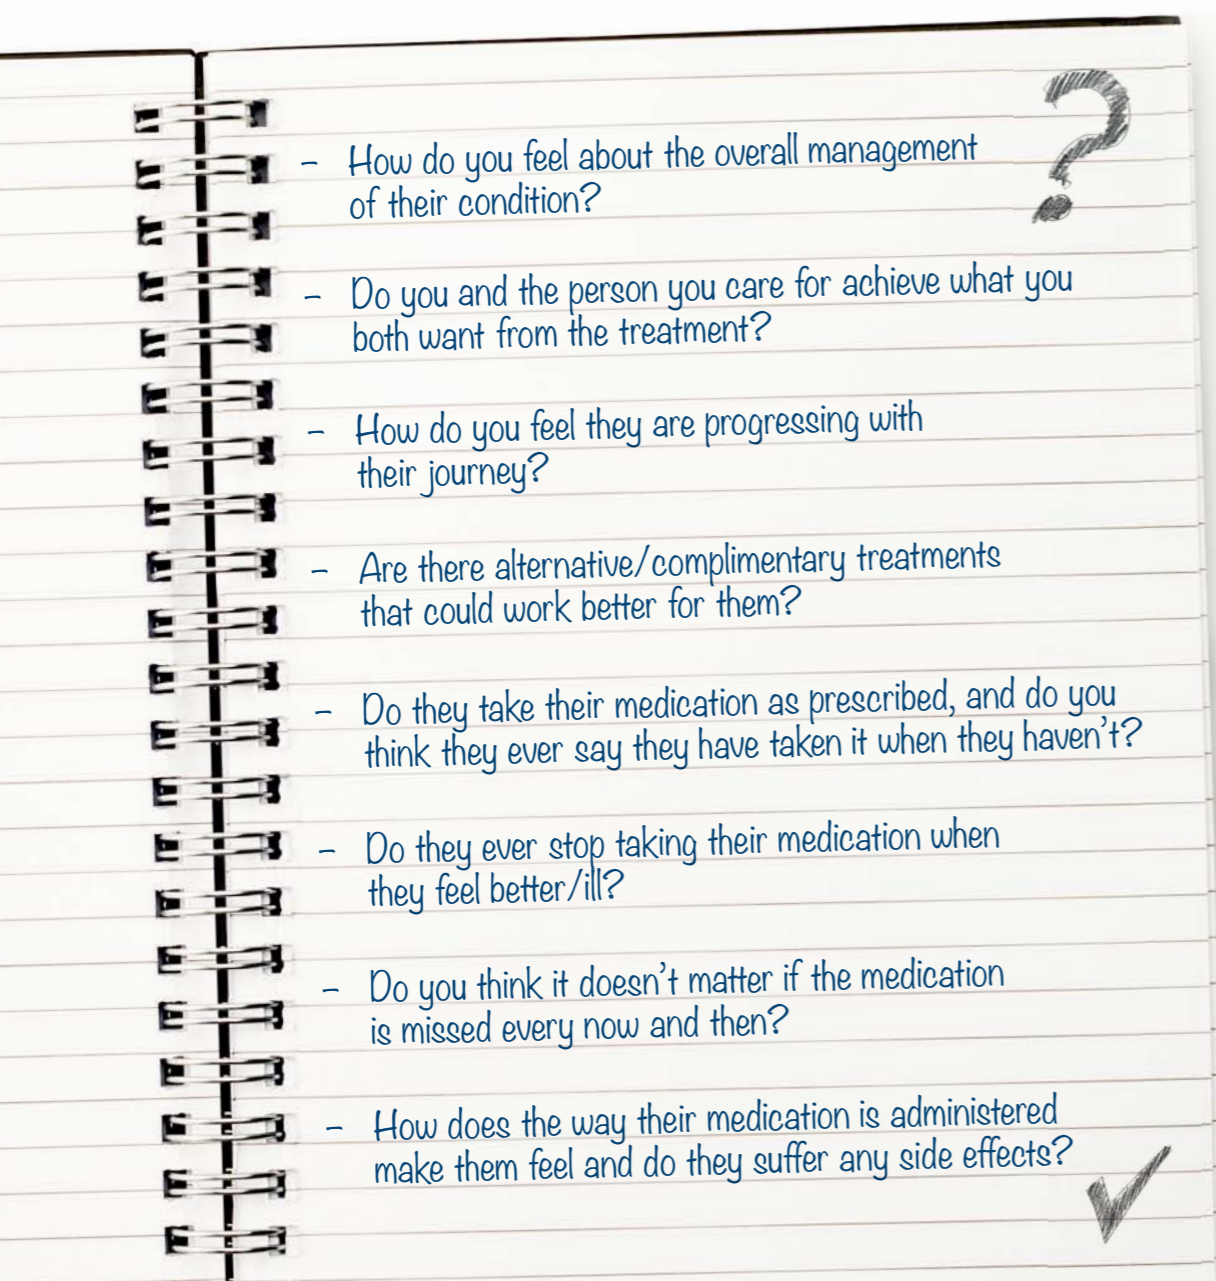 – How do you feel about the overall management
of their condition?
– Do you and the person you care for achieve what you
both want from the treatment?
– How do you feel they are progressing with
their journey?
– Are there alternative/complimentary treatments
that could work better for them?
– Do they take their medication as prescribed, and do you
think they ever say they have taken it when they haven't?
– Do they ever stop taking their medication when
they feel better/ill?
– Do you think it doesn't matter if the medication
is missed every now and then?
– How does the way their medication is administered
make them feel and do they suffer any side effects?